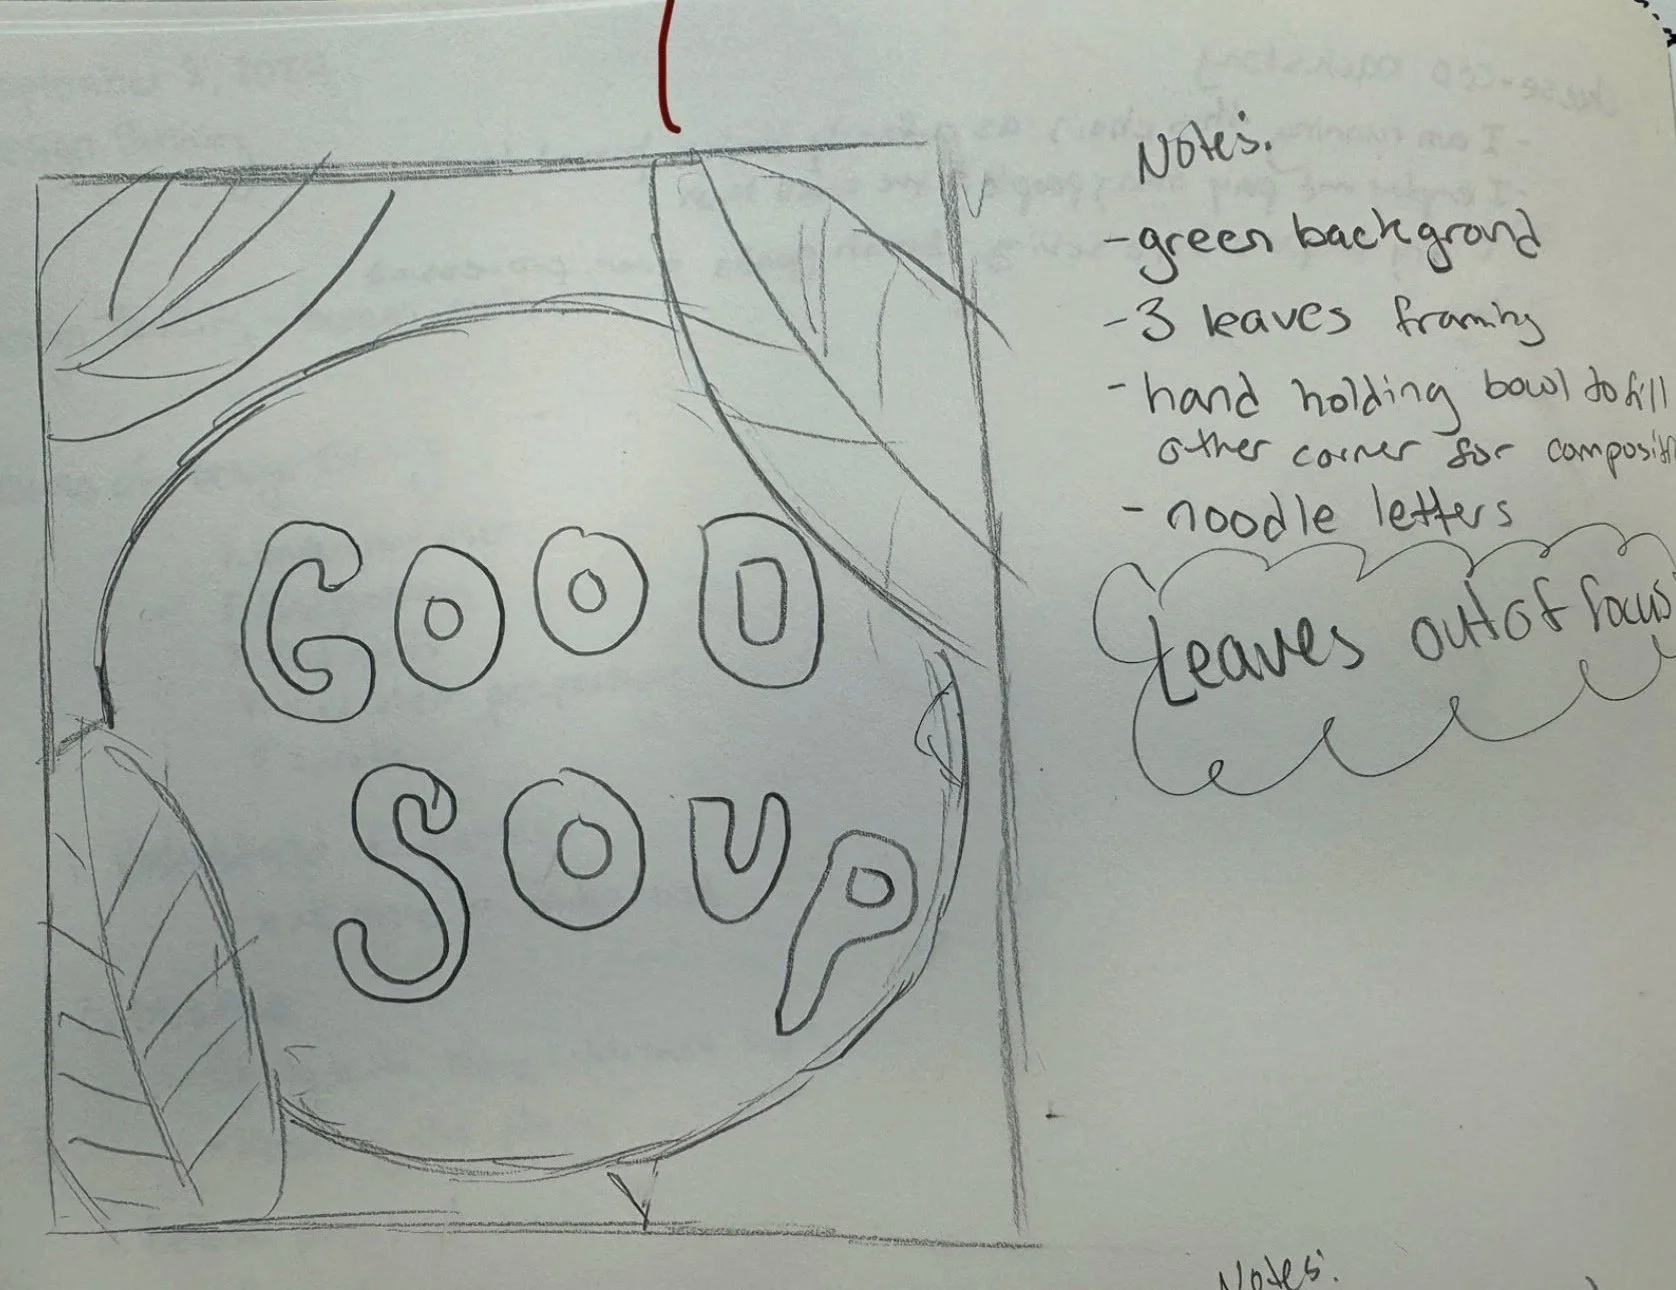 GOOD
SOUP
Notes:
- green backgrond
- 3 leaves framing
- hand holding bowl to fill
other corner for composit
- noodle letters
Leaves out of focus
Notes: